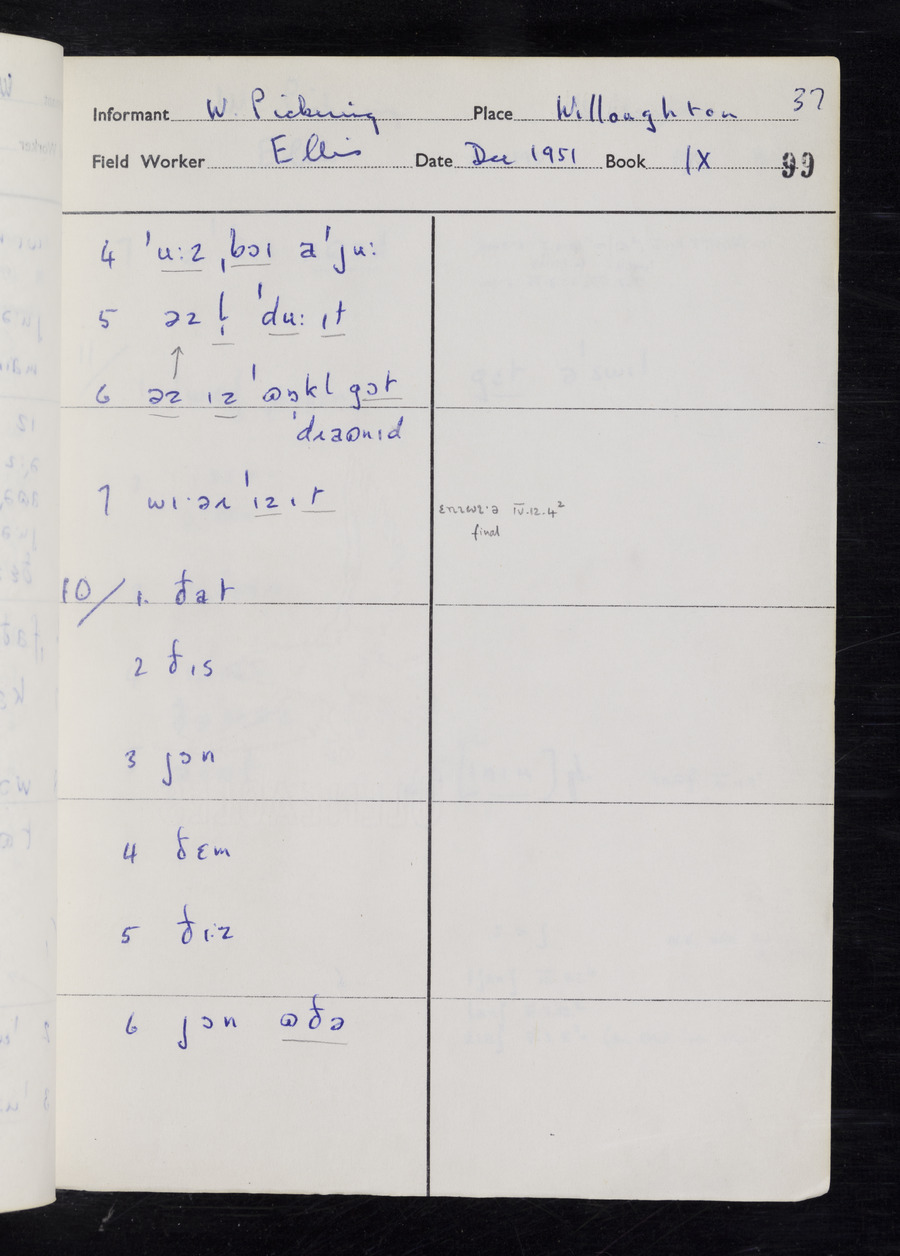 37
Informant W. Pickering Place Willoughton
Field Worker Ellis Date Dec 1951 Book IX 99
4 ˈuːz ˌbɔɪ əˈjuː
5 əz l̩ ˈduː ɪt
↑
6 əz ɪz ˈɷŋkl gɔt
ˈdɹaɷnɪd
7 wɪ·əɹ ˈɪz ɪt
ɛnɪwɪ·ə IV.12.4²
final
10/ 1. ðat
2 ðɪs
3 jɔn
4 ðɛm
5 ðɪːz
6 jɔn ɷðə